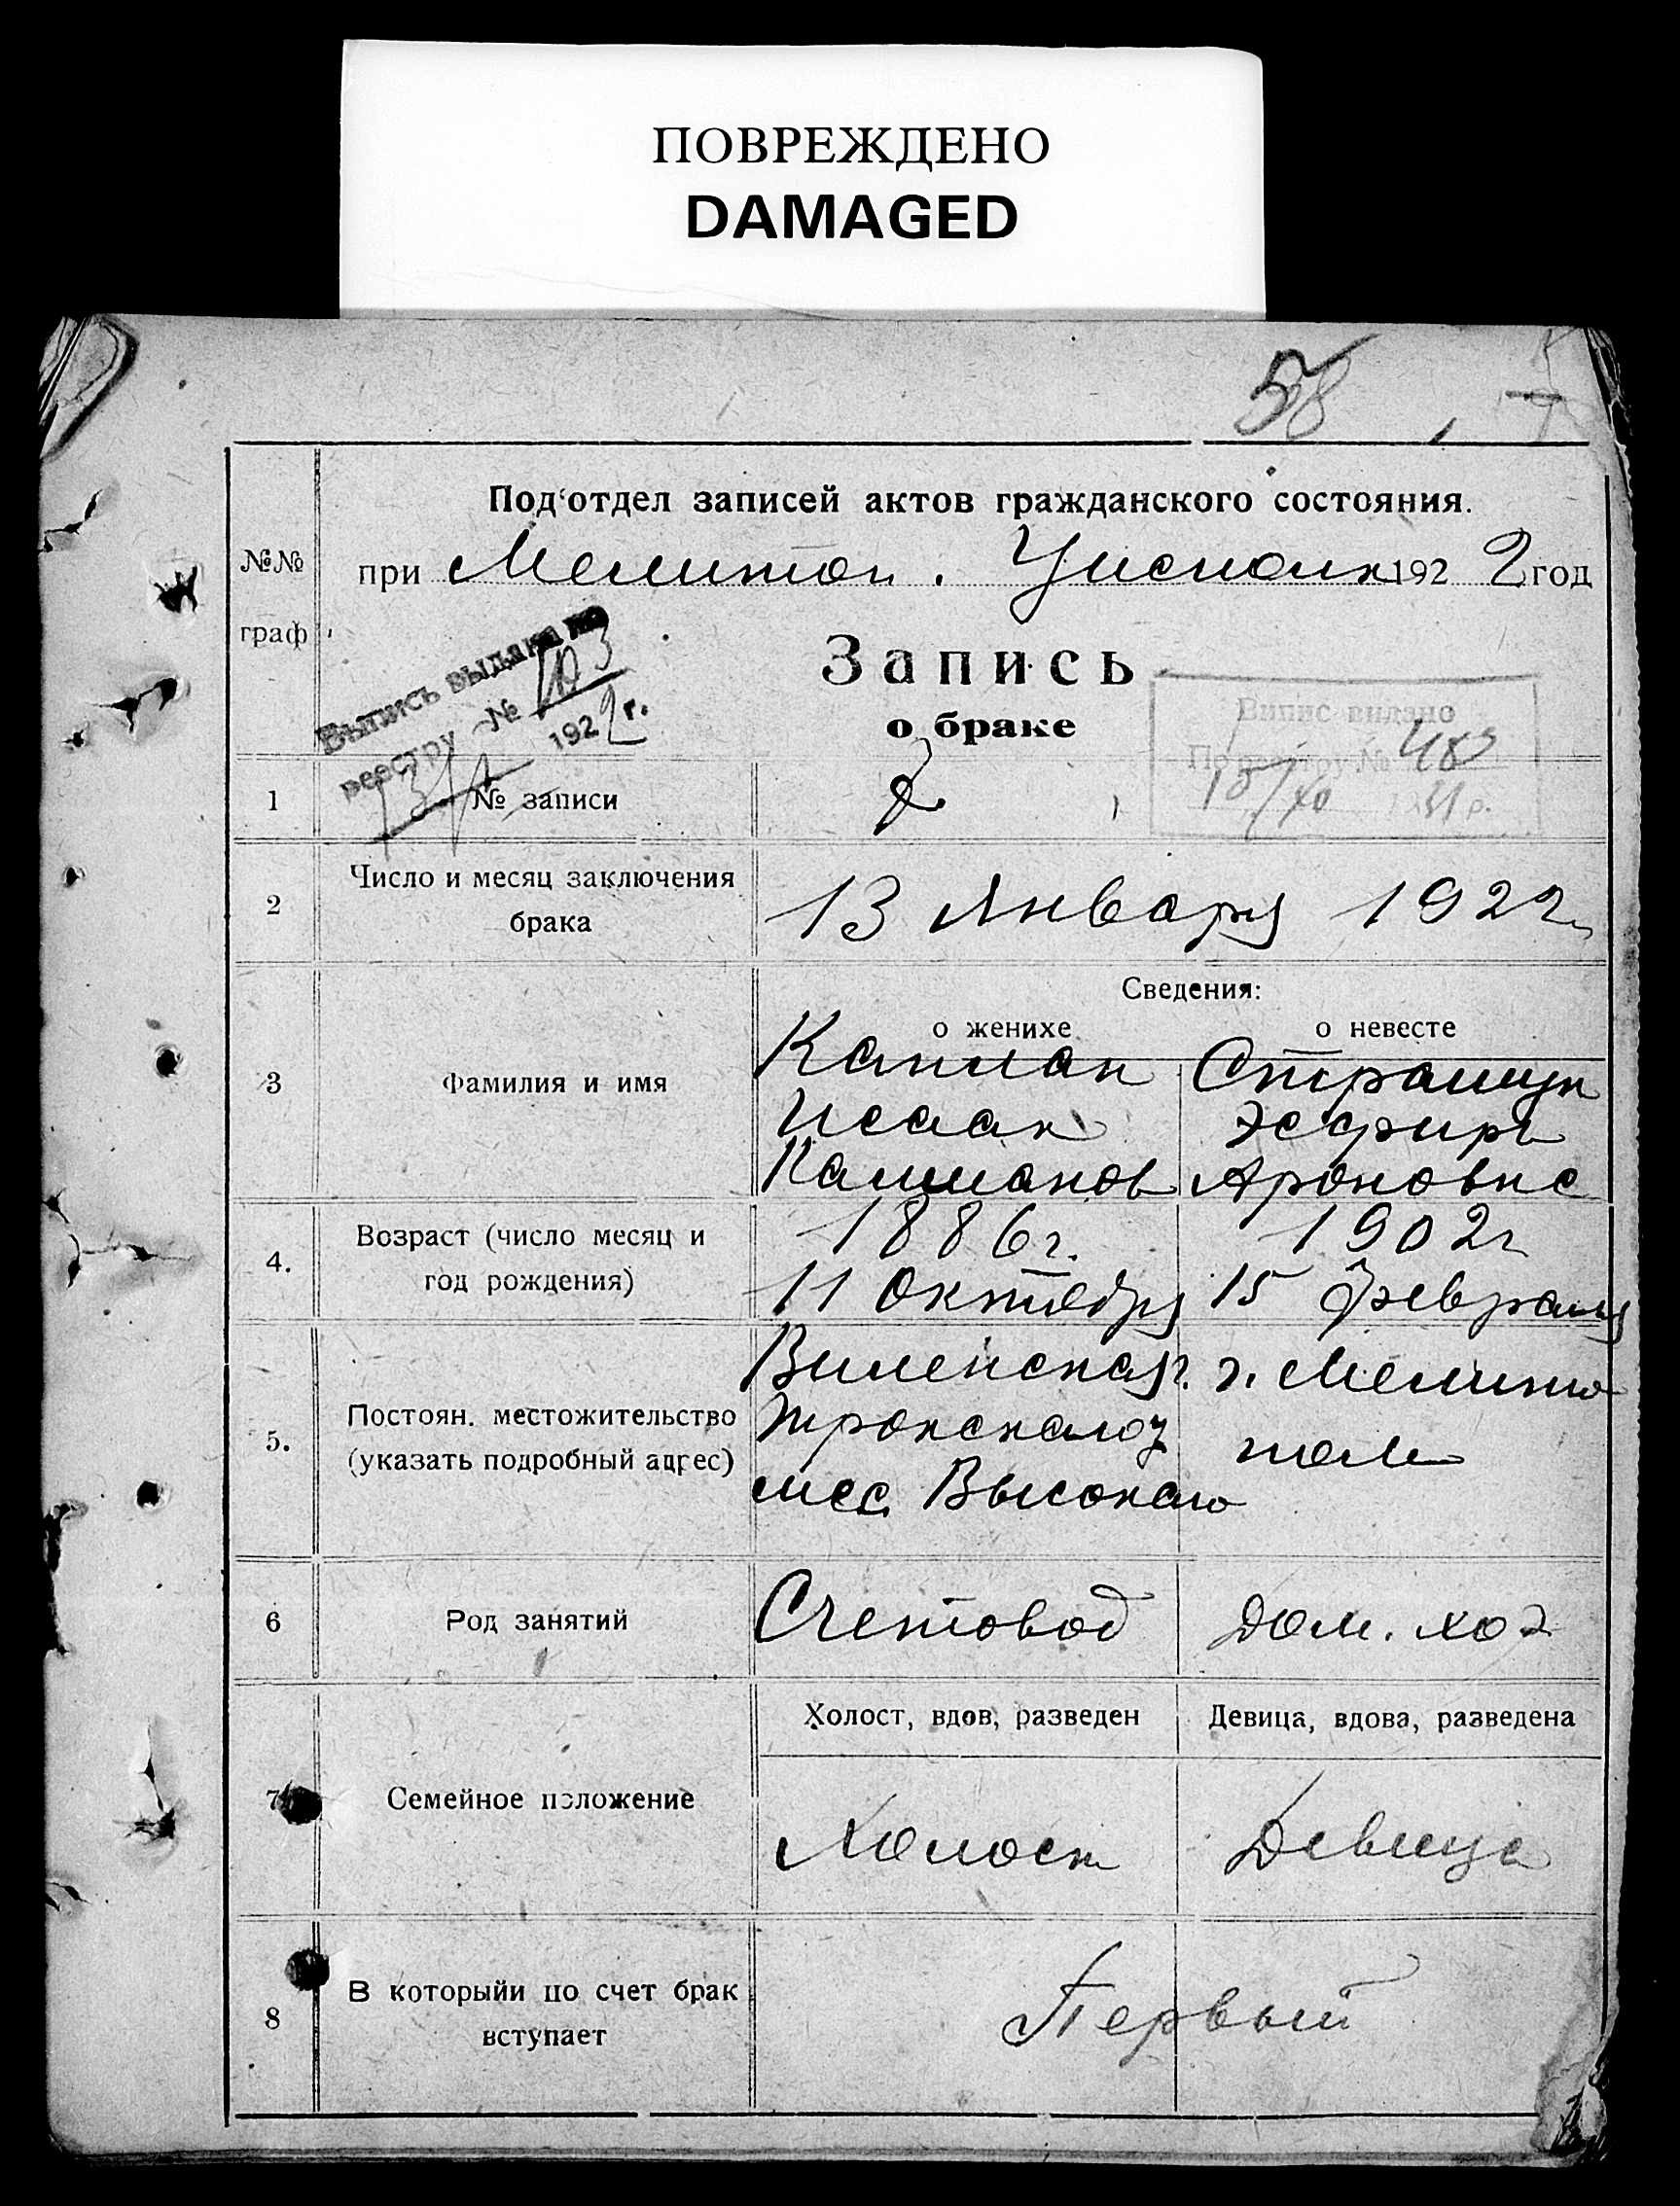 ПОВРЕЖДЕНО
DAMAGED
58
Подотдел записей актов гражданского состояния.
№№ граф
при Мелитоп. Уисполк 1922 год
Выпись выдана по
реестру № 103
1922 г.
Запись
о браке
Випис видано
По реєстру № 483
1 № записи 2
2 Число и месяц заключения
брака
13 Января 1922
Сведения:
о женихе о невесте
3 Фамилия и имя
Каплан Страшун
Исаак Эсфирь
Калманов Ароновна
4. Возраст (число месяц и
год рождения)
1886 г. 1902 г
11 Октября 15 февраля
5. Постоян. местожительство
(указать подробный адрес)
Виленская г. г. Мелито
Трокского у поль
мес. Высокого
6 Род занятий Счетовод дом. хоз
Холост, вдов, разведен Девица, вдова, разведена
7 Семейное положение Холост Девица
8 В которыйи по счет брак
вступает
Первый